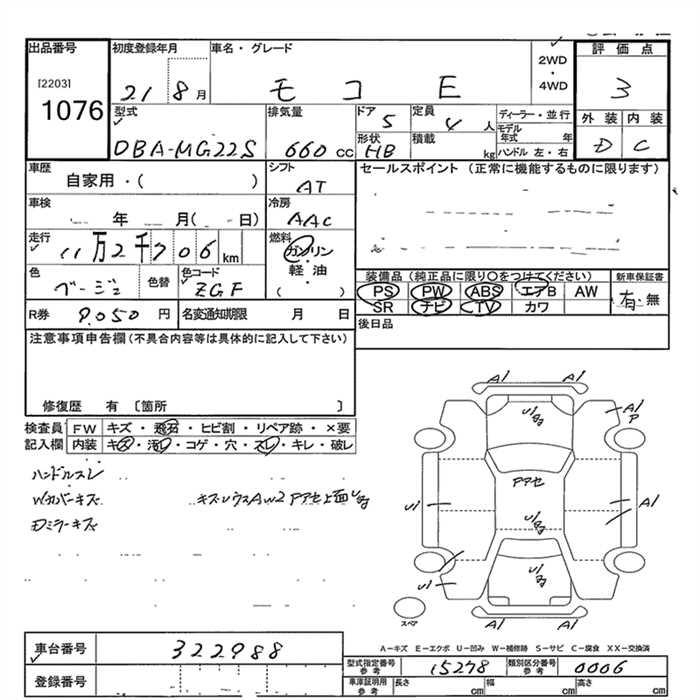 出品番号 初度登録年月 車名・グレード 2WD・4WD 評価点
[2203]
1076 21 8月 モコ E 3
型式 排気量 ドア 定員 ディーラー・並行 外装 内装
DBA-MG22S 660cc 5 4人 モデル年式 年 D C
形状 HB 積載 kg ハンドル 左・右
車歴 シフト セールスポイント (正常に機能するものに限ります)
自家用・( ) AT
車検 冷房
年 月( 日) AAC
走行 燃料
11万2千706km ガソリン・軽油
( )
装備品(純正品に限り○をつけてください) 新車保証書
色 色替 色コード PS PW ABS エアB AW 有・無
ベージュ ZGF SR ナビ TV カワ
R券 9.050円 名変通知期限 月 日 後日品
注意事項申告欄(不具合内容等は具体的に記入して下さい)
修復歴 有 〔箇所 〕
検査員 FW キズ・飛石・ヒビ割・リペア跡・×要
記入欄 内装 キズ・汚レ・コゲ・穴・スレ・キレ・破レ
ハンドルスレ
Wカバーキズ キズ
Dミラーキズ
A1 A1
A1
P
アアセ
U1 A1
U1
A1 A1
スペア
A-キズ E-エクボ U-凹み W-補修跡 S-サビ C-腐食 XX-交換済
車台番号 322988
登録番号
型式指定番号 参考 15278 類別区分番号 参考 0006
車庫証明用 参考 長さ cm 幅 cm 高さ cm